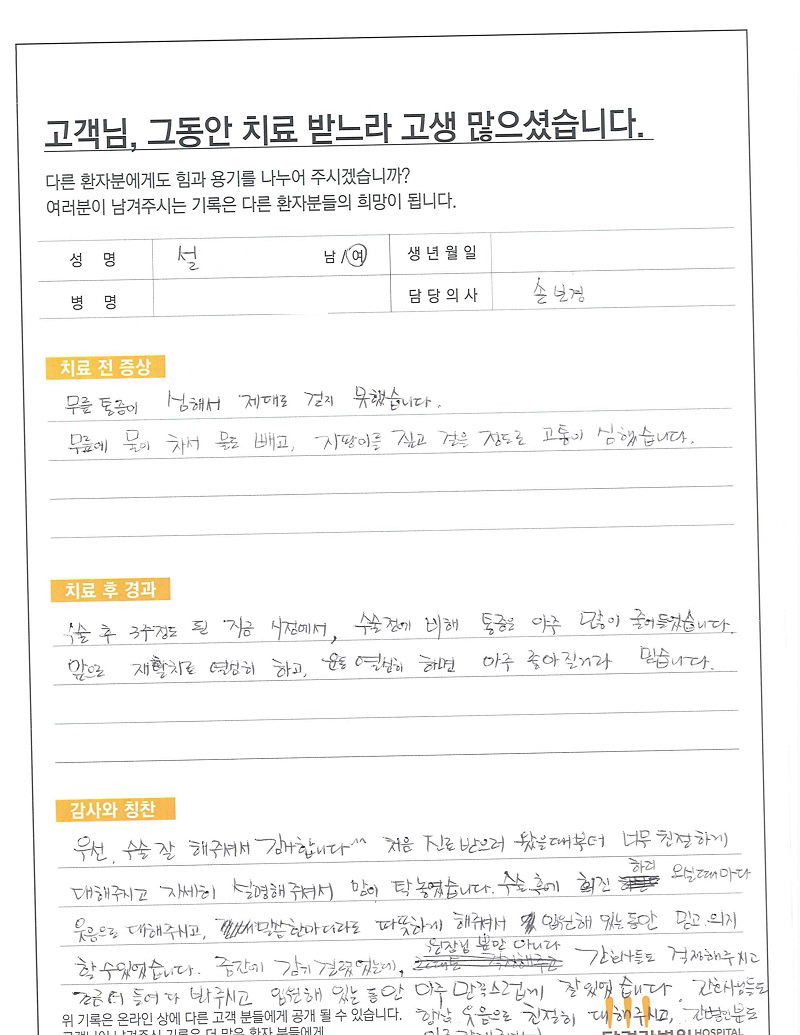 고객님, 그동안 치료 받느라 고생 많으셨습니다.
다른 환자분에게도 힘과 용기를 나누어 주시겠습니까?
여러분이 남겨주시는 기록은 다른 환자분들의 희망이 됩니다.
성 명 설 남/여 생년월일
병 명 담당의사 손보경
치료 전 증상
무릎 통증이 심해서 제대로 걷지 못했습니다.
무릎에 물이 차서 물도 빼고, 지팡이를 짚고 걸을 정도로 고통이 심했습니다.
치료 후 경과
수술 후 3주정도 된 지금 시점에서, 수술전에 비해 통증은 아주 많이 줄어들었습니다.
앞으로 재활치료 열심히 하고, 운동 열심히 하면 아주 좋아질거라 믿습니다.
감사와 칭찬
우선, 수술 잘 해주셔서 감사합니다^^ 처음 진료 받으러 왔을때부터 너무 친절하게
대해주시고 자세히 설명해주셔서 맘이 탁 놓였습니다. 수술 후에 회진 하러 오실때마다
웃음으로 대해주시고, 말씀 한마디라도 따뜻하게 해주셔서 입원해 있는동안 믿고 의지
할 수 있었습니다. 중간에 감기 걸렸었는데, 원장님 뿐만 아니라 간호사님들도 걱정해주시고
들여다 봐주시고 입원해 있는 동안 아주 만족스럽게 잘 있었습니다. 간호사님들도
항상 웃음으로 친절히 대해주시고,
위 기록은 온라인 상에 다른 고객 분들에게 공개 될 수 있습니다.
HOSPITAL